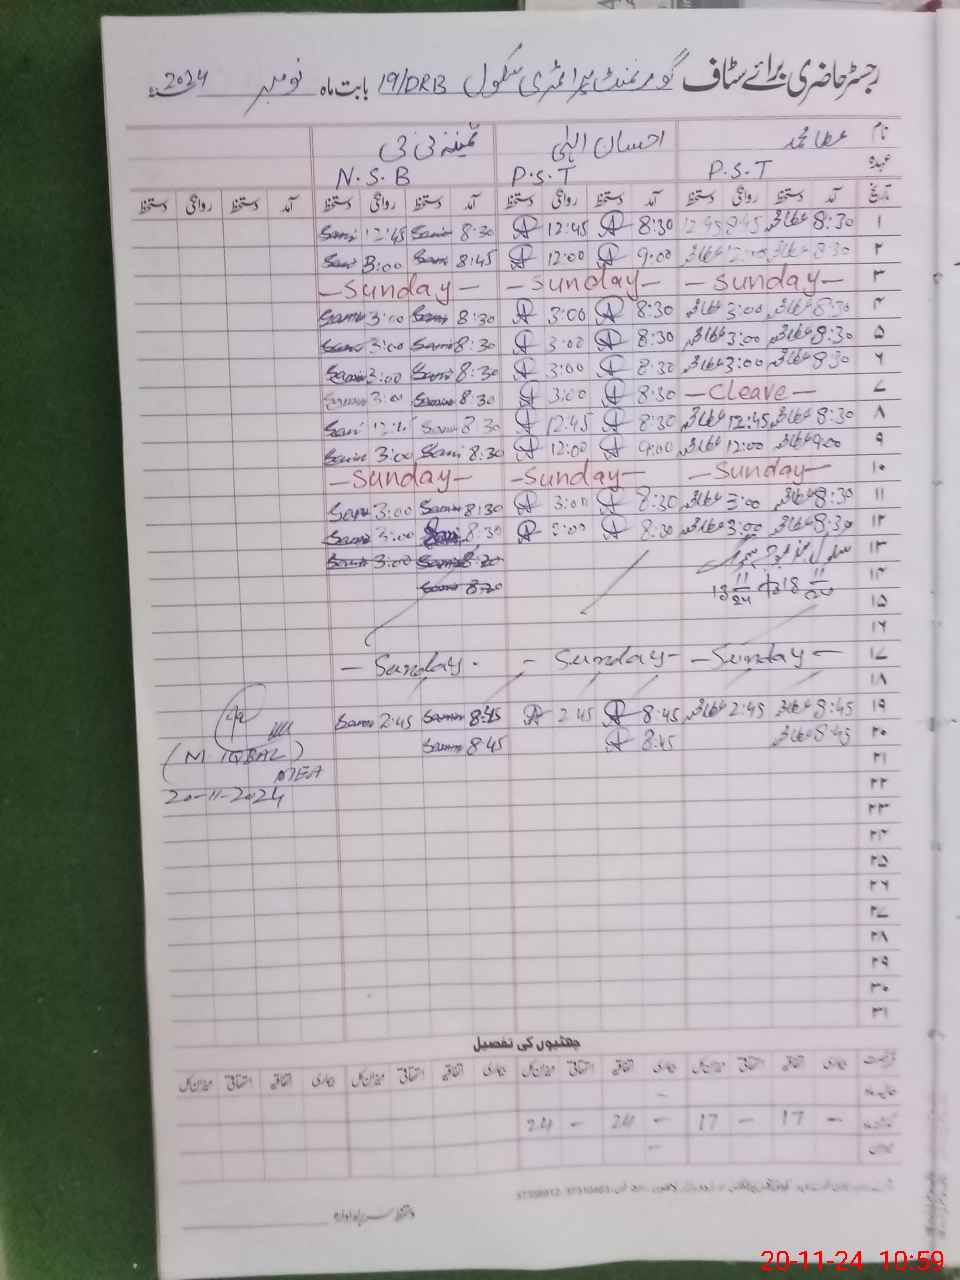 رجسٹر حاضری برائے سٹاف گورنمنٹ پرائمری سکول 19/DRB بابت ماہ نومبر 2024
نام عطا محمد احسان الہٰی ثمینہ بی بی
عہدہ P.S.T P.S.T N.S.B
تاریخ آمد دستخط روانگی دستخط آمد دستخط روانگی دستخط آمد دستخط روانگی دستخط آمد دستخط روانگی دستخط
۱ 8:30 عطا محمد 12:45 8:30 12:45 8:30 Sami 12:45 Sami
۲ 8:30 عطا محمد 12:00 عطا محمد 9:00 12:00 8:45 Sami 3:00 Sami
۳ - Sunday - - Sunday - - Sunday -
۴ 8:30 عطا محمد 3:00 عطا محمد 8:30 3:00 8:30 Sami 3:00 Sami
۵ 8:30 عطا محمد 3:00 عطا محمد 8:30 3:00 8:30 Sami 3:00 Sami
۶ 8:30 عطا محمد 3:00 عطا محمد 8:30 3:00 8:30 Sami 3:00 Sami
۷ - Cleave - 8:30 3:00 8:30 Sami 3:00 Sami
۸ 8:30 عطا محمد 12:45 عطا محمد 8:30 12:45 8:30 Sami Sami
۹ 9:00 عطا محمد 12:00 عطا محمد 9:00 12:00 8:30 Sami 3:00 Sami
۱۰ - Sunday - - Sunday - - Sunday -
۱۱ 8:30 عطا محمد 3:00 عطا محمد 8:30 3:00 8:30 Sami 3:00 Sami
۱۲ 8:30 عطا محمد 3:00 عطا محمد 8:30 3:00 8:30 Sami 3:00 Sami
۱۳ سکول 8:30 Sami 3:00 Sami
۱۴ 13 11/24 18 11/24 8:30 Sami
۱۵
۱۶
۱۷ - Sunday - - Sunday - - Sunday -
۱۸
۱۹ 8:45 عطا محمد 2:45 عطا محمد 8:45 2:45 8:45 Sami 2:45 Sami
۲۰ 8:45 عطا محمد 8:45 8:45 Sami
(M IQBAL)
MEA
20-11-2024
۲۱
۲۲
۲۳
۲۴
۲۵
۲۶
۲۷
۲۸
۲۹
۳۰
۳۱
چھٹیوں کی تفصیل
بیماری اتفاقیہ استحقاقی میزان کل بیماری اتفاقیہ استحقاقی میزان کل بیماری اتفاقیہ استحقاقی میزان کل بیماری اتفاقیہ استحقاقی میزان کل
- 17 - 17 - 24 - 24
دستخط سربراہ ادارہ
20-11-24 10:59